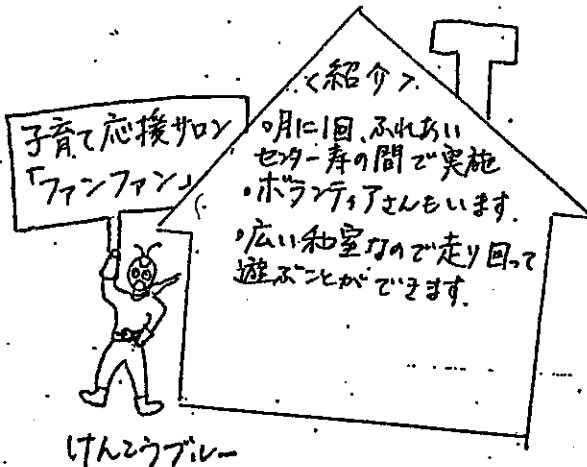 子育て応援サロン
「ファンファン」
<紹介>
・月に1回、ふれあい
センター寿の間で実施
・ボランティアさんもいます.
・広い和室なので走り回って
遊ぶことができます.
けんこうブルー